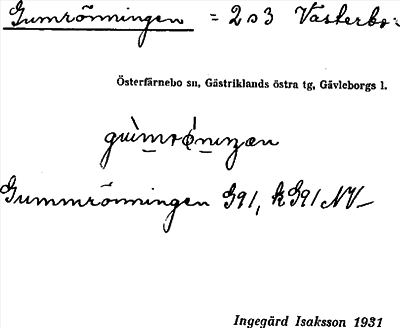 Gumrönningen = 2 o 3 Västerbo:
Österfärnebo sn, Gästriklands östra tg, Gävleborgs l.
Gummrönningen G91, k G91 NV
Ingegärd Isaksson 1931